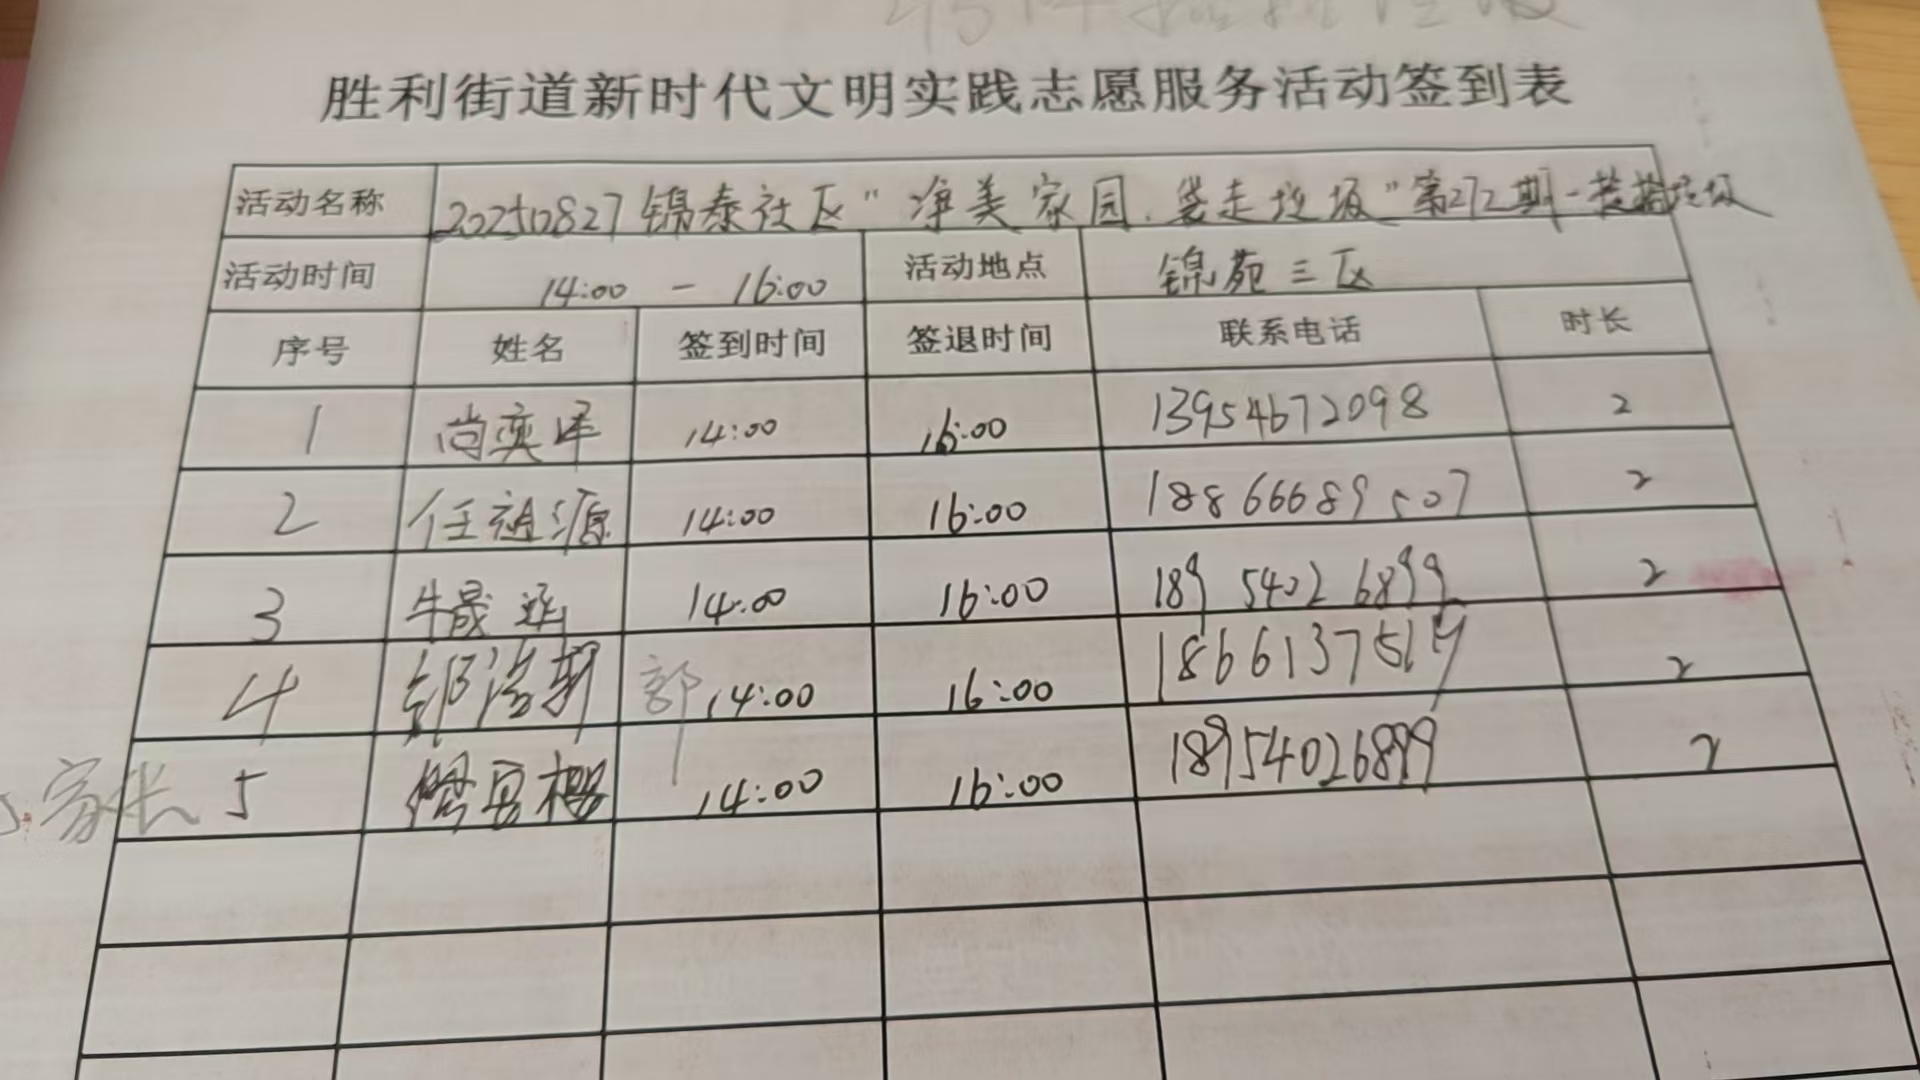 胜利街道新时代文明实践志愿服务活动签到表
活动名称 20250827锦泰社区"净美家园.袋走垃圾"第272期-捡拾垃圾
活动时间 14:00 - 16:00 活动地点 锦苑三区
序号 姓名 签到时间 签退时间 联系电话 时长
1 尚奕泽 14:00 16:00 13954672098 2
2 任祖源 14:00 16:00 18866689507 2
3 牛晟涵 14:00 16:00 18954026899 2
4 郭洺 郭 14:00 16:00 186613751 2
家长 5 14:00 16:00 18954026899 2